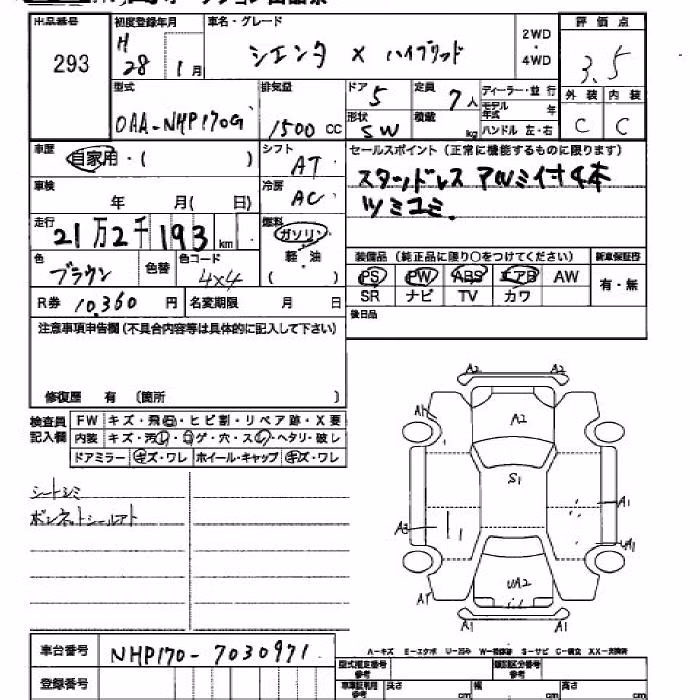 出品番号 初度登録年月 車名・グレード 2WD・4WD 評価点
293 H28 1月 シエンタ X ハイブリッド 3.5
型式 排気量 ドア 5 定員 7人 ディーラー・並行 外装 内装
モデル年式 年
DAA-NHP170G 1500cc 形状 SW 積載 kg ハンドル 左・右 C C
車歴 自家用・( ) シフト AT セールスポイント(正常に機能するものに限ります)
車検 年 月( 日) 冷房 AC スタッドレス アルミ付4本
ツミコミ.
走行 21万2千193km 燃料 ガソリン
軽・油
( )
装備品(純正品に限り○をつけてください) 新車保証書
色 ブラウン 色替 色コード 4x4 PS PW ABS エアB AW 有・無
SR ナビ TV カワ
R券 10,360円 名変期限 月 日
後日品
注意事項申告欄(不具合内容等は具体的に記入して下さい)
修復歴 有 (箇所 )
検査員記入欄 FW キズ・飛石・ヒビ割・リペア跡・X要
内装 キズ・汚レ・コゲ・穴・スレ・ヘタリ・破レ
ドアミラー キズ・ワレ ホイール・キャップ キズ・ワレ
シートシミ
ボンネットシールアト
A2 A2
A1 A2
S1
A1
A3
UA1
UA2
A1
A1 A1
A-キズ E-エクボ U-凹み W-補修跡 S-サビ C-腐食 XX-交換済
車台番号 NHP170-7030971
型式指定番号 類別区分番号
登録番号 車車証利用参考 長さ cm 幅 cm 高さ cm